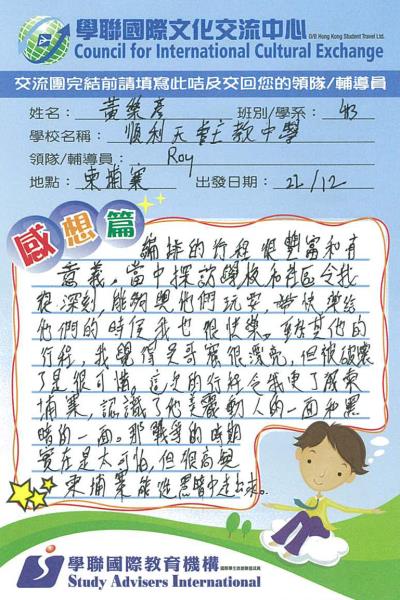 學聯國際文化交流中心 O/B Hong Kong Student Travel Ltd.
Council for International Cultural Exchange
交流團完結前請填寫此咭及交回您的領隊/輔導員
姓名： 黃樂彥 班別/學系：
學校名稱： 順利天主教中學
領隊/輔導員： Roy
地點： 柬埔寨 出發日期： 22/12
感想篇
編排的行程很豐富和有
意義。當中探訪學校和社區令我
很深刻，能夠與他們玩耍，帶快樂給
他們的時候我也很快樂。至於其他的
行程，我覺得吳哥窟很漂亮，但被破壞
了是很可惜。這次的行程令我更了解柬
埔寨，認識了他美麗動人的一面和黑
暗的一面。那戰爭的時期
實在是太可怕，但很高興
柬埔寨能從黑暗中走出來。
學聯國際教育機構
Study Advisers International